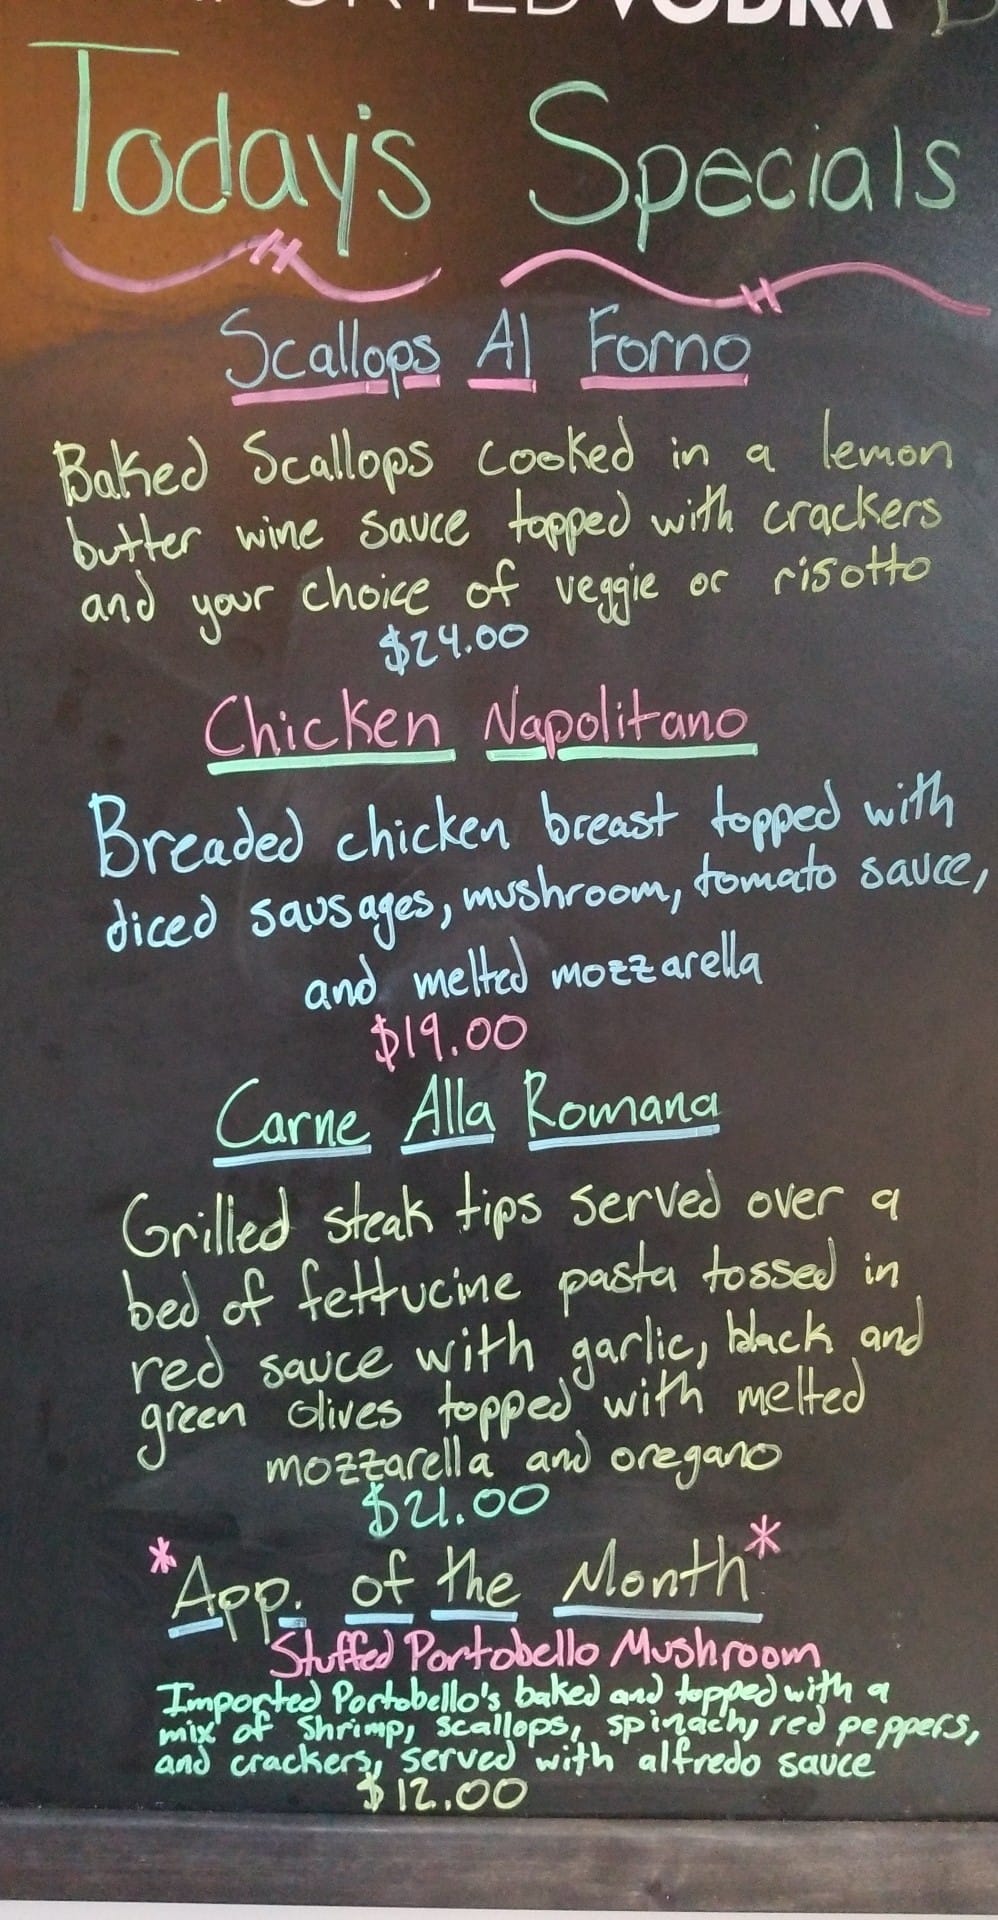 VODKA
Today's Specials
Scallops Al Forno
Baked Scallops cooked in a lemon
butter wine sauce topped with crackers
and your choice of veggie or risotto
$24.00
Chicken Napolitano
Breaded chicken breast topped with
diced sausages, mushroom, tomato sauce,
and melted mozzarella
$19.00
Carne Alla Romana
Grilled steak tips served over a
bed of fettucine pasta tossed in
red sauce with garlic, black and
green olives topped with melted
mozzarella and oregano
$21.00
*App. of the Month*
Stuffed Portobello Mushroom
Imported Portobello's baked and topped with a
mix of shrimp, scallops, spinach, red peppers,
and crackers, served with alfredo sauce
$12.00